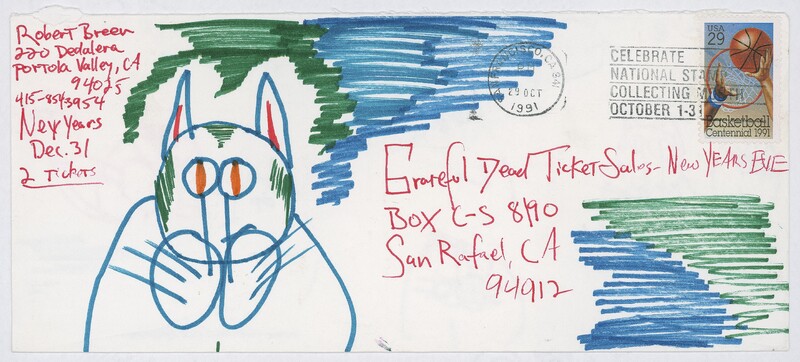 Robert Breen
220 Dedalera
Portola Valley, CA
94025
415-8543954
New Years
Dec. 31
2 Tickets
SAN FRANCISCO, CA 941
29 OCT
1991
CELEBRATE
NATIONAL STAMP
COLLECTING MONTH
OCTOBER 1-31
USA
29
Basketball
Centennial 1991
Grateful Dead Ticket Sales - New Years Eve
Box C-S 8190
San Rafael, CA
94912